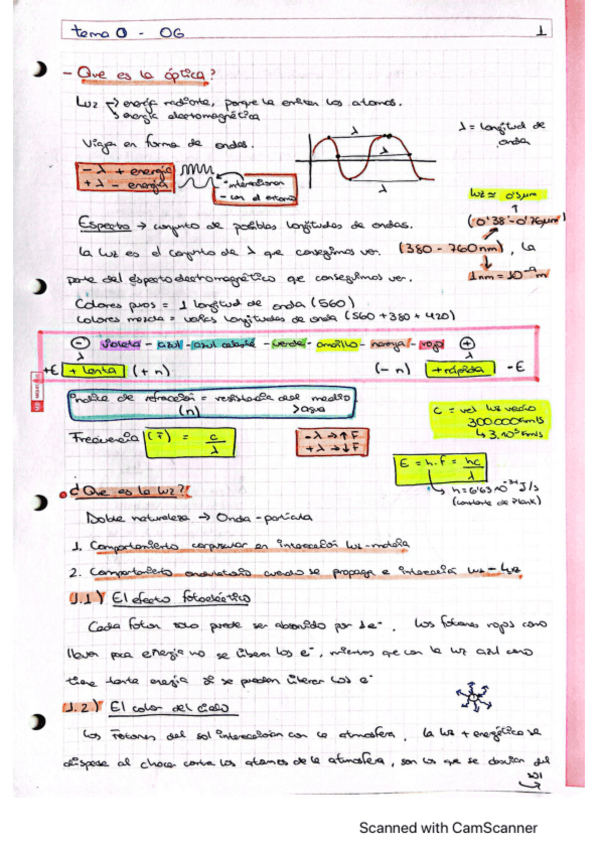 tema 0 - OG 1
- Que es la óptica?
Luz → energía radiante, porque la emiten los atomos.
→ energia electromagnética
Viaja en forma de ondas.
λ = longitud de onda
λ
λ
λ
- λ + energia
+ λ - energia
- interaccionan
- con el entorno
luz ≈ 0'5 µm
(0'38 - 0'76 µm)
Espectro → conjunto de posibles longitudes de ondas.
La luz es el conjunto de λ que conseguimos ver. (380 - 760nm), la
parte del espectro electromagnético que conseguimos ver.
1nm = 10⁻⁹m
Colores puros = 1 longitud de onda (560)
Colores mezcla = varias longitudes de onda (560 + 380 + 420)
- violeta - azul - azul celeste - verde - amarillo - naranja - rojo +
λ λ
+E + lenta (+ n) (- n) + rápida - E
Indice de refracción = resistencia del medio
(n) > agua
c = vel luz vacío
300000 km/s
Frecuencia (F) = c/λ
- λ → ↑ F
+ λ → ↓ F
E = h.f = hc/λ
(constante de Plank)
¿Que es la luz?
Doble naturaleza → Onda - partícula
1. Comportamiento corpuscular en interacción luz - materia
2. Comportamiento ondulatorio cuando se propaga e interacción luz - luz
1.1) El efecto fotoeléctrico
Cada foton solo puede ser absorvido por 1e⁻. Los fotones rojos como
llevan poca energía no se liberan los e⁻, mientras que con la luz azul como
tiene tanta energia si se pueden liberar los e⁻
1.2) El color del cielo
Los Fotones del sol interaccionan con la atmosfera, la luz + energética se
dispersa al chocar contra los atomos de la atmosfera, son los que se desvian del
sol
Scanned with CamScanner